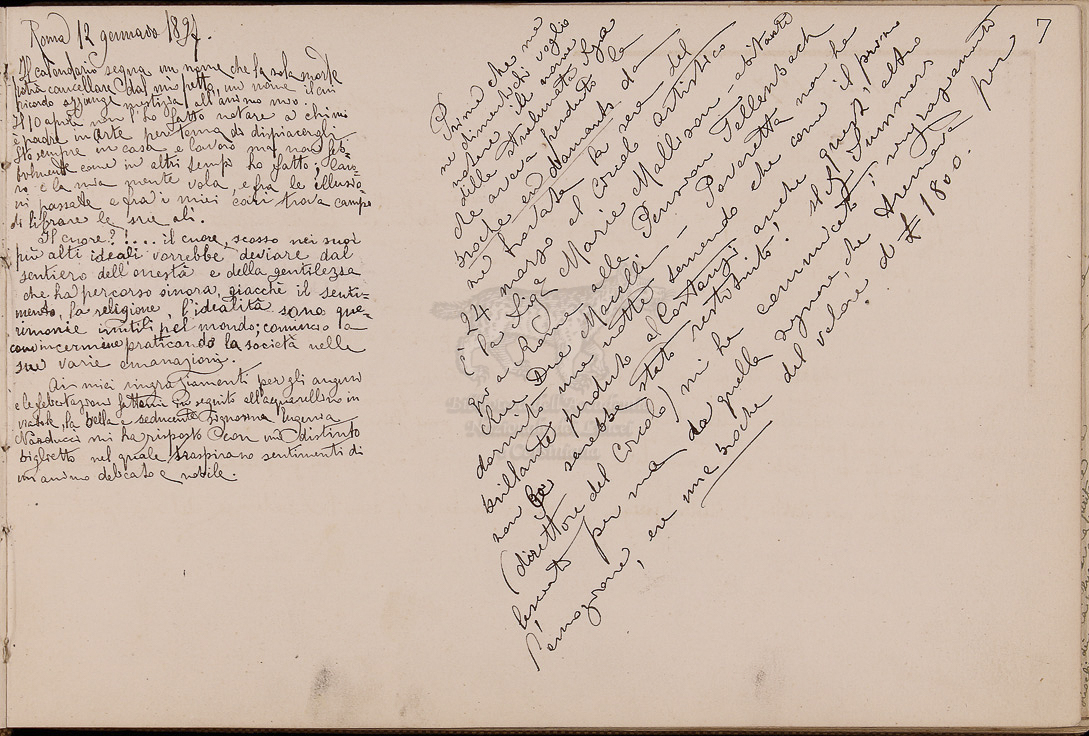 7
Roma 12 gennaio 1897.
Il calendario segna un nome che la sola morte
potrà cancellare dal mio petto, un nome il cui
ricordo aggiunge mestizia all'animo mio.
Il 10 aprile non l'ho fatto notare a chi mi
è padre in arte per tema di dispiacergli.
Sto sempre in casa e lavoro ma non feb-
brilmente come in altri tempi ho fatto; lavo-
ro e la mia mente vola, e fra le illusio-
ni passate e fra i miei cari trova campo
di librare le sue ali.
Il cuore?!... il cuore, scosso nei suoi
più alti ideali vorrebbe deviare dal
sentiero dell'onestà e della gentilezza
che ha percorso sinora, giacchè il senti-
mento, la religione, l'idealità sono que-
rimonie inutili pel mondo; comincio a
convincermene praticando la società nelle
sue varie emanazioni.
Ai miei ringraziamenti per gli auguri
e le felicitazioni fattemi in seguito all'acquarellino in
la bella e seducente Signorina Eugenia
Narducci mi ha risposto con un distinto
biglietto nel quale traspirano sentimenti di
un animo delicato e nobile.
Prima che me
ne dimentichi voglio
notare il nome
della stralunata
che aveva perduto la
broche en diamants da
me trovata la sera del
24 marzo al Circolo artistico
È la Sig.a Marie Mallison - abitante
qui a Roma alla Pension Tellenbach
Due Macelli - Poveretta non ha
dormito una notte temendo che come il primo
brillante perduto al Costanzi anche quest'altro
non le sarebbe stato restituito! Il Sig.
(direttore del Circolo) mi ha comunicato i ringraziamenti
lasciati per me da quella signora, che tremava per
l'emozione, era una broche del valore di £ 1800.